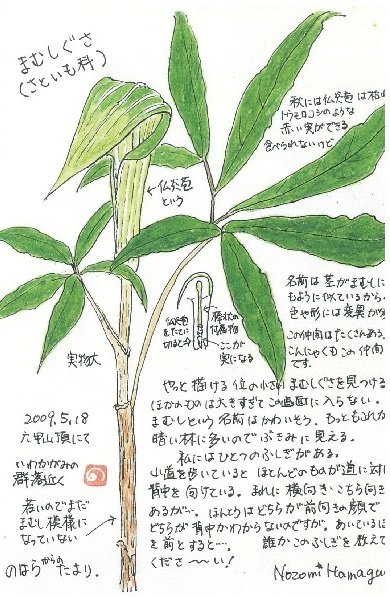 まむしぐさ
(さといも科)
秋には仏炎苞は枯
トウモロコシのような
赤い実ができる
食べられないけど
←仏炎苞
という
名前は茎がまむしに
もように似ているから。
色や形には変異が
この仲間はたくさんある。
こんにゃくもこの仲間
です。
仏炎苞
をたてに
切ると
棒状の
付属物
ここが
実になる
実物大
やっと描ける位の小さいまむしぐさを見つける
ほかのものは大きすぎてこの画面に入らない。
まむしという名前はかわいそう。もっともこれが
暗い林に多いのでぶきみに見える。
私にはひとつのふしぎがある。
山道を歩いているとほとんどのものが道に対
背中を向けている。まれに横向き・こちら向き
あるが…。ほんとうはどちらが前向きの顔で
どちらが背中かわからないのですが。あいているほ
を前とすると…。誰かこのふしぎを教えて
くださ〜い!
2009.5.18
六甲山頂にて
いわかがみの
群落近く
若いのでまだ
まむし模様に
なっていない
のはらからのたより。
Nozomi Hamagu